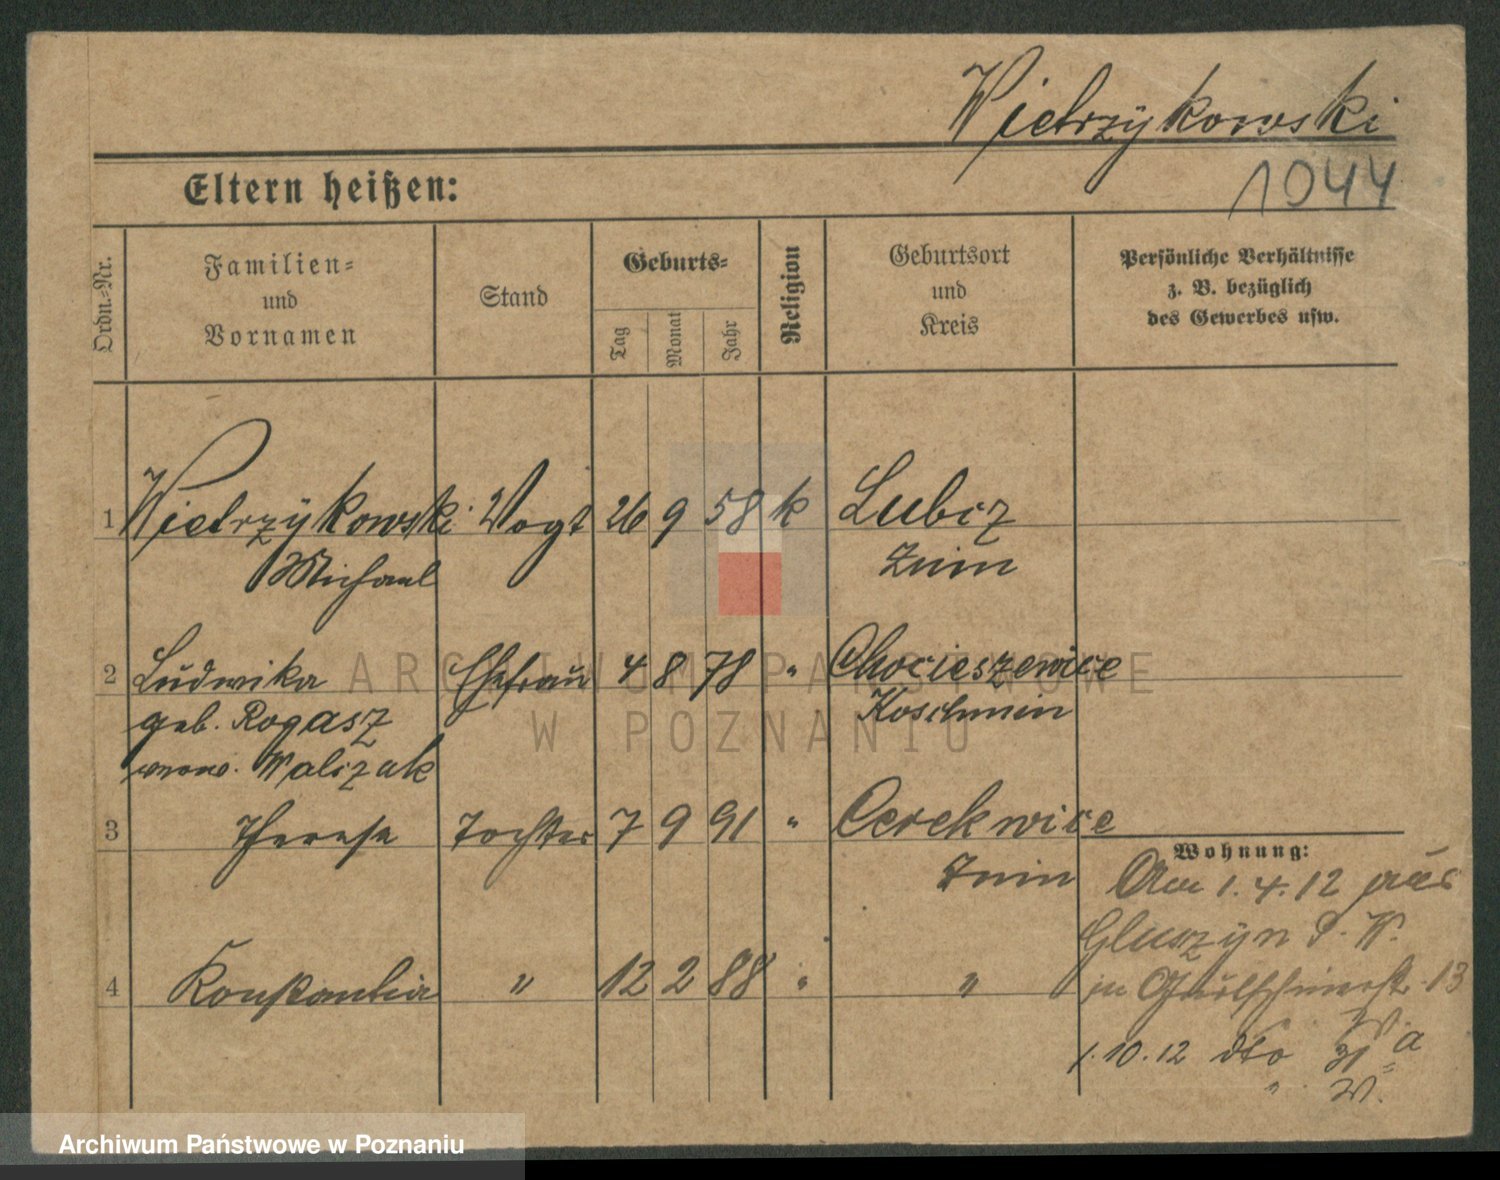 Wietrzÿkowski
1044
Eltern heißen:
Ordn.-Nr.
Familien-
und
Vornamen
Stand
Geburts-
Tag
Monat
Jahr
Religion
Geburtsort
und
Kreis
Persönliche Verhältnisse
z. B. bezüglich
des Gewerbes usw.
1 Wietrzÿkowski Vogt 26 9 58 k Lubcz
Michael Znin
2 Ludwika Ehefrau 4 8 78 " Chocieszewice
geb. Rogasz Koschmin
verw. Walczak
3 Therese Tochter 7 9 91 " Cerekwice
Znin
Wohnung:
Am 1.4.12 aus
Gluszÿn P. W.
4 Konstantia " 12 2 88 " "
in 13
W.
1.10.12 dto 31 a
" W.
ARCHIWUM PAŃSTWOWE
W POZNANIU
Archiwum Państwowe w Poznaniu